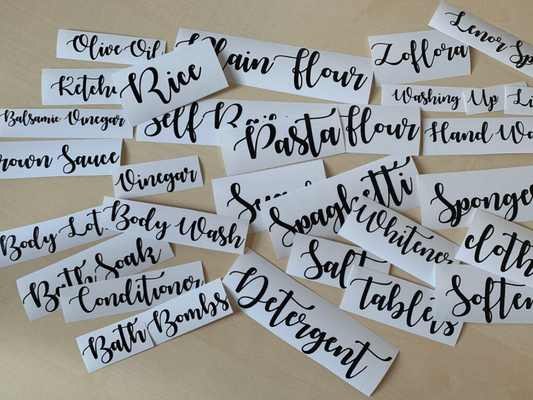 Olive Oil
Plain flour
Zoflora
Lenor Sp
Ketch
Rice
Washing Up Li
Balsamic Vinegar
Self Rai flour
Pasta
Hand Wa
rown Sauce
Vinegar
Spaghetti
Sponge
Body Lot
Body Wash
Whitener
cloth
Bath Soak
Salt
Conditioner
Tablets
Soften
Detergent
Bath Bombs